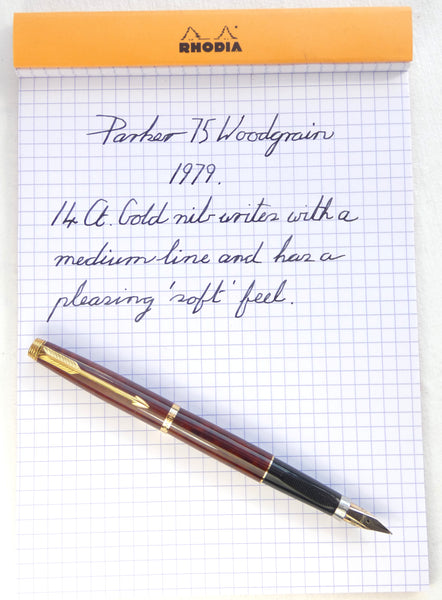 RHODIA
Parker 75 Woodgrain
1979.
14 Ct. Gold nib writes with a
medium line and has a
pleasing 'soft' feel.